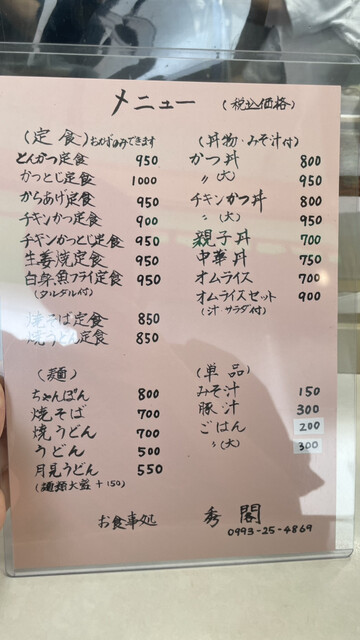 メニュー (税込価格)
(定食) おかずのみできます
とんかつ定食 950
かつとじ定食 1000
からあげ定食 950
チキンかつ定食 900
チキンかつとじ定食 950
生姜焼定食 950
白身魚フライ定食 950
(タルタル付)
焼そば定食 850
焼うどん定食 850
(麺)
ちゃんぽん 800
焼そば 700
焼うどん 700
うどん 500
月見うどん 550
(麺類大盛 +150)
(丼物・みそ汁付)
かつ丼 800
〃 (大) 950
チキンかつ丼 800
〃 (大) 950
親子丼 700
中華丼 750
オムライス 700
オムライスセット 900
(汁 サラダ付)
(単品)
みそ汁 150
豚汁 300
ごはん 200
〃 (大) 300
お食事処 秀閣
0993-25-4869